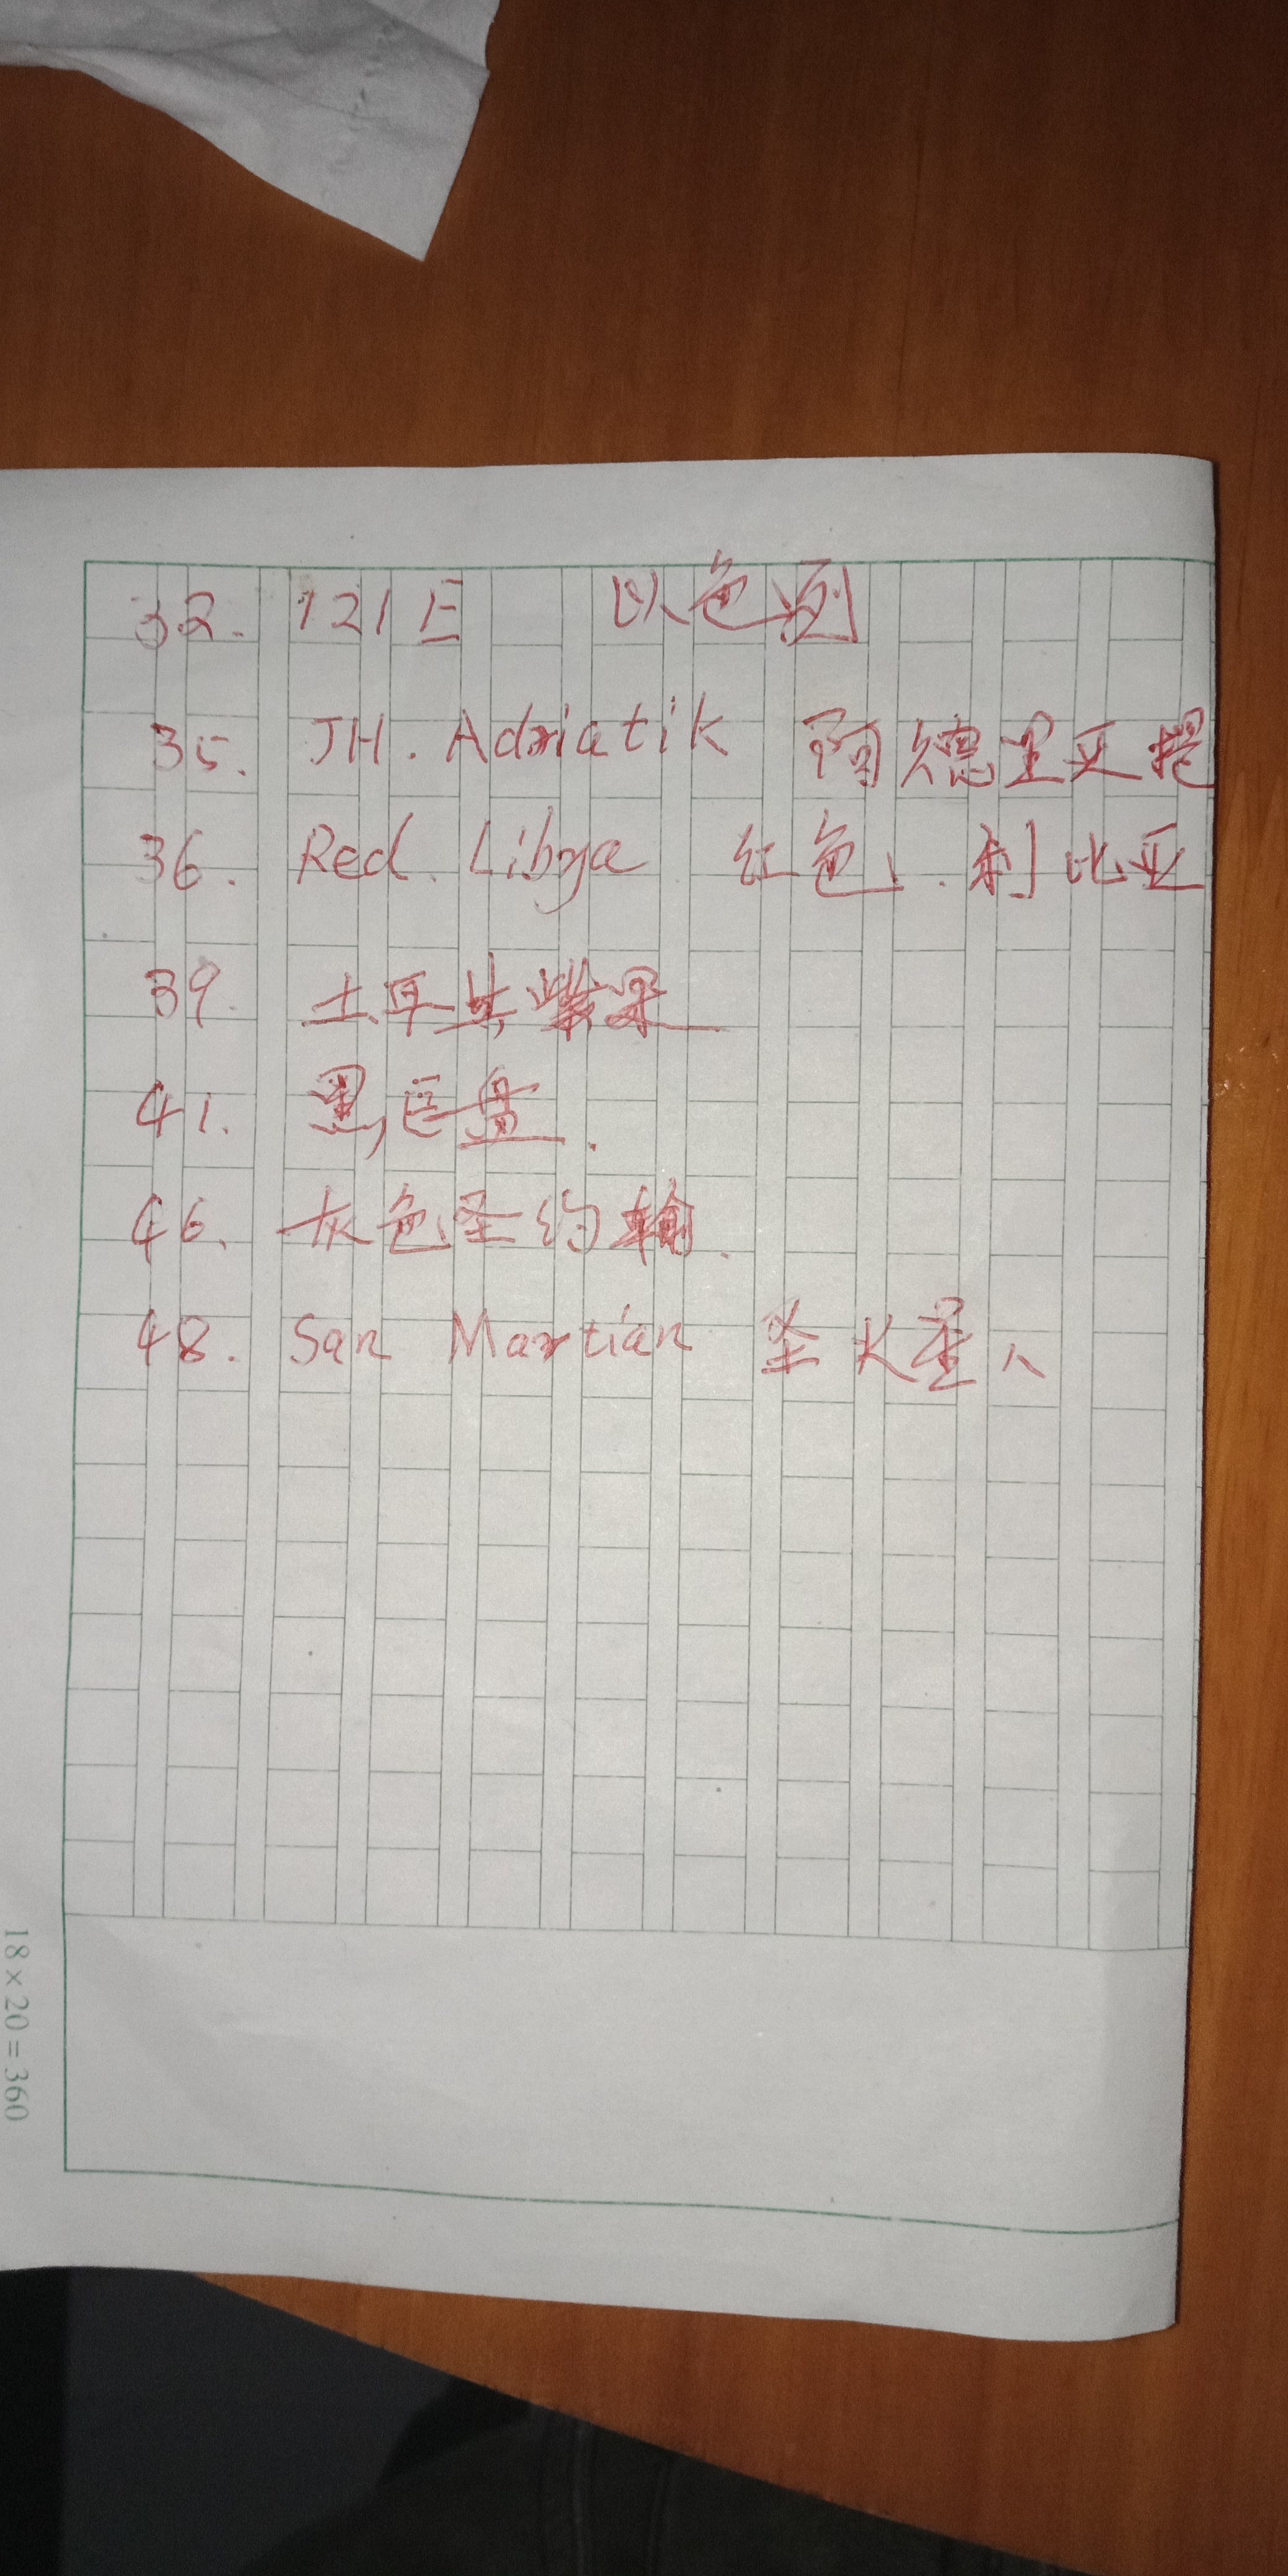 32. 121E 以色列
35. JH. Adriatik 阿德里亚提
36. Red. Libya 红色、利比亚
39. 土耳其紫果
41. 黑巨盘.
46. 灰色圣约翰.
48. San Martian 圣火星人
18×20=360